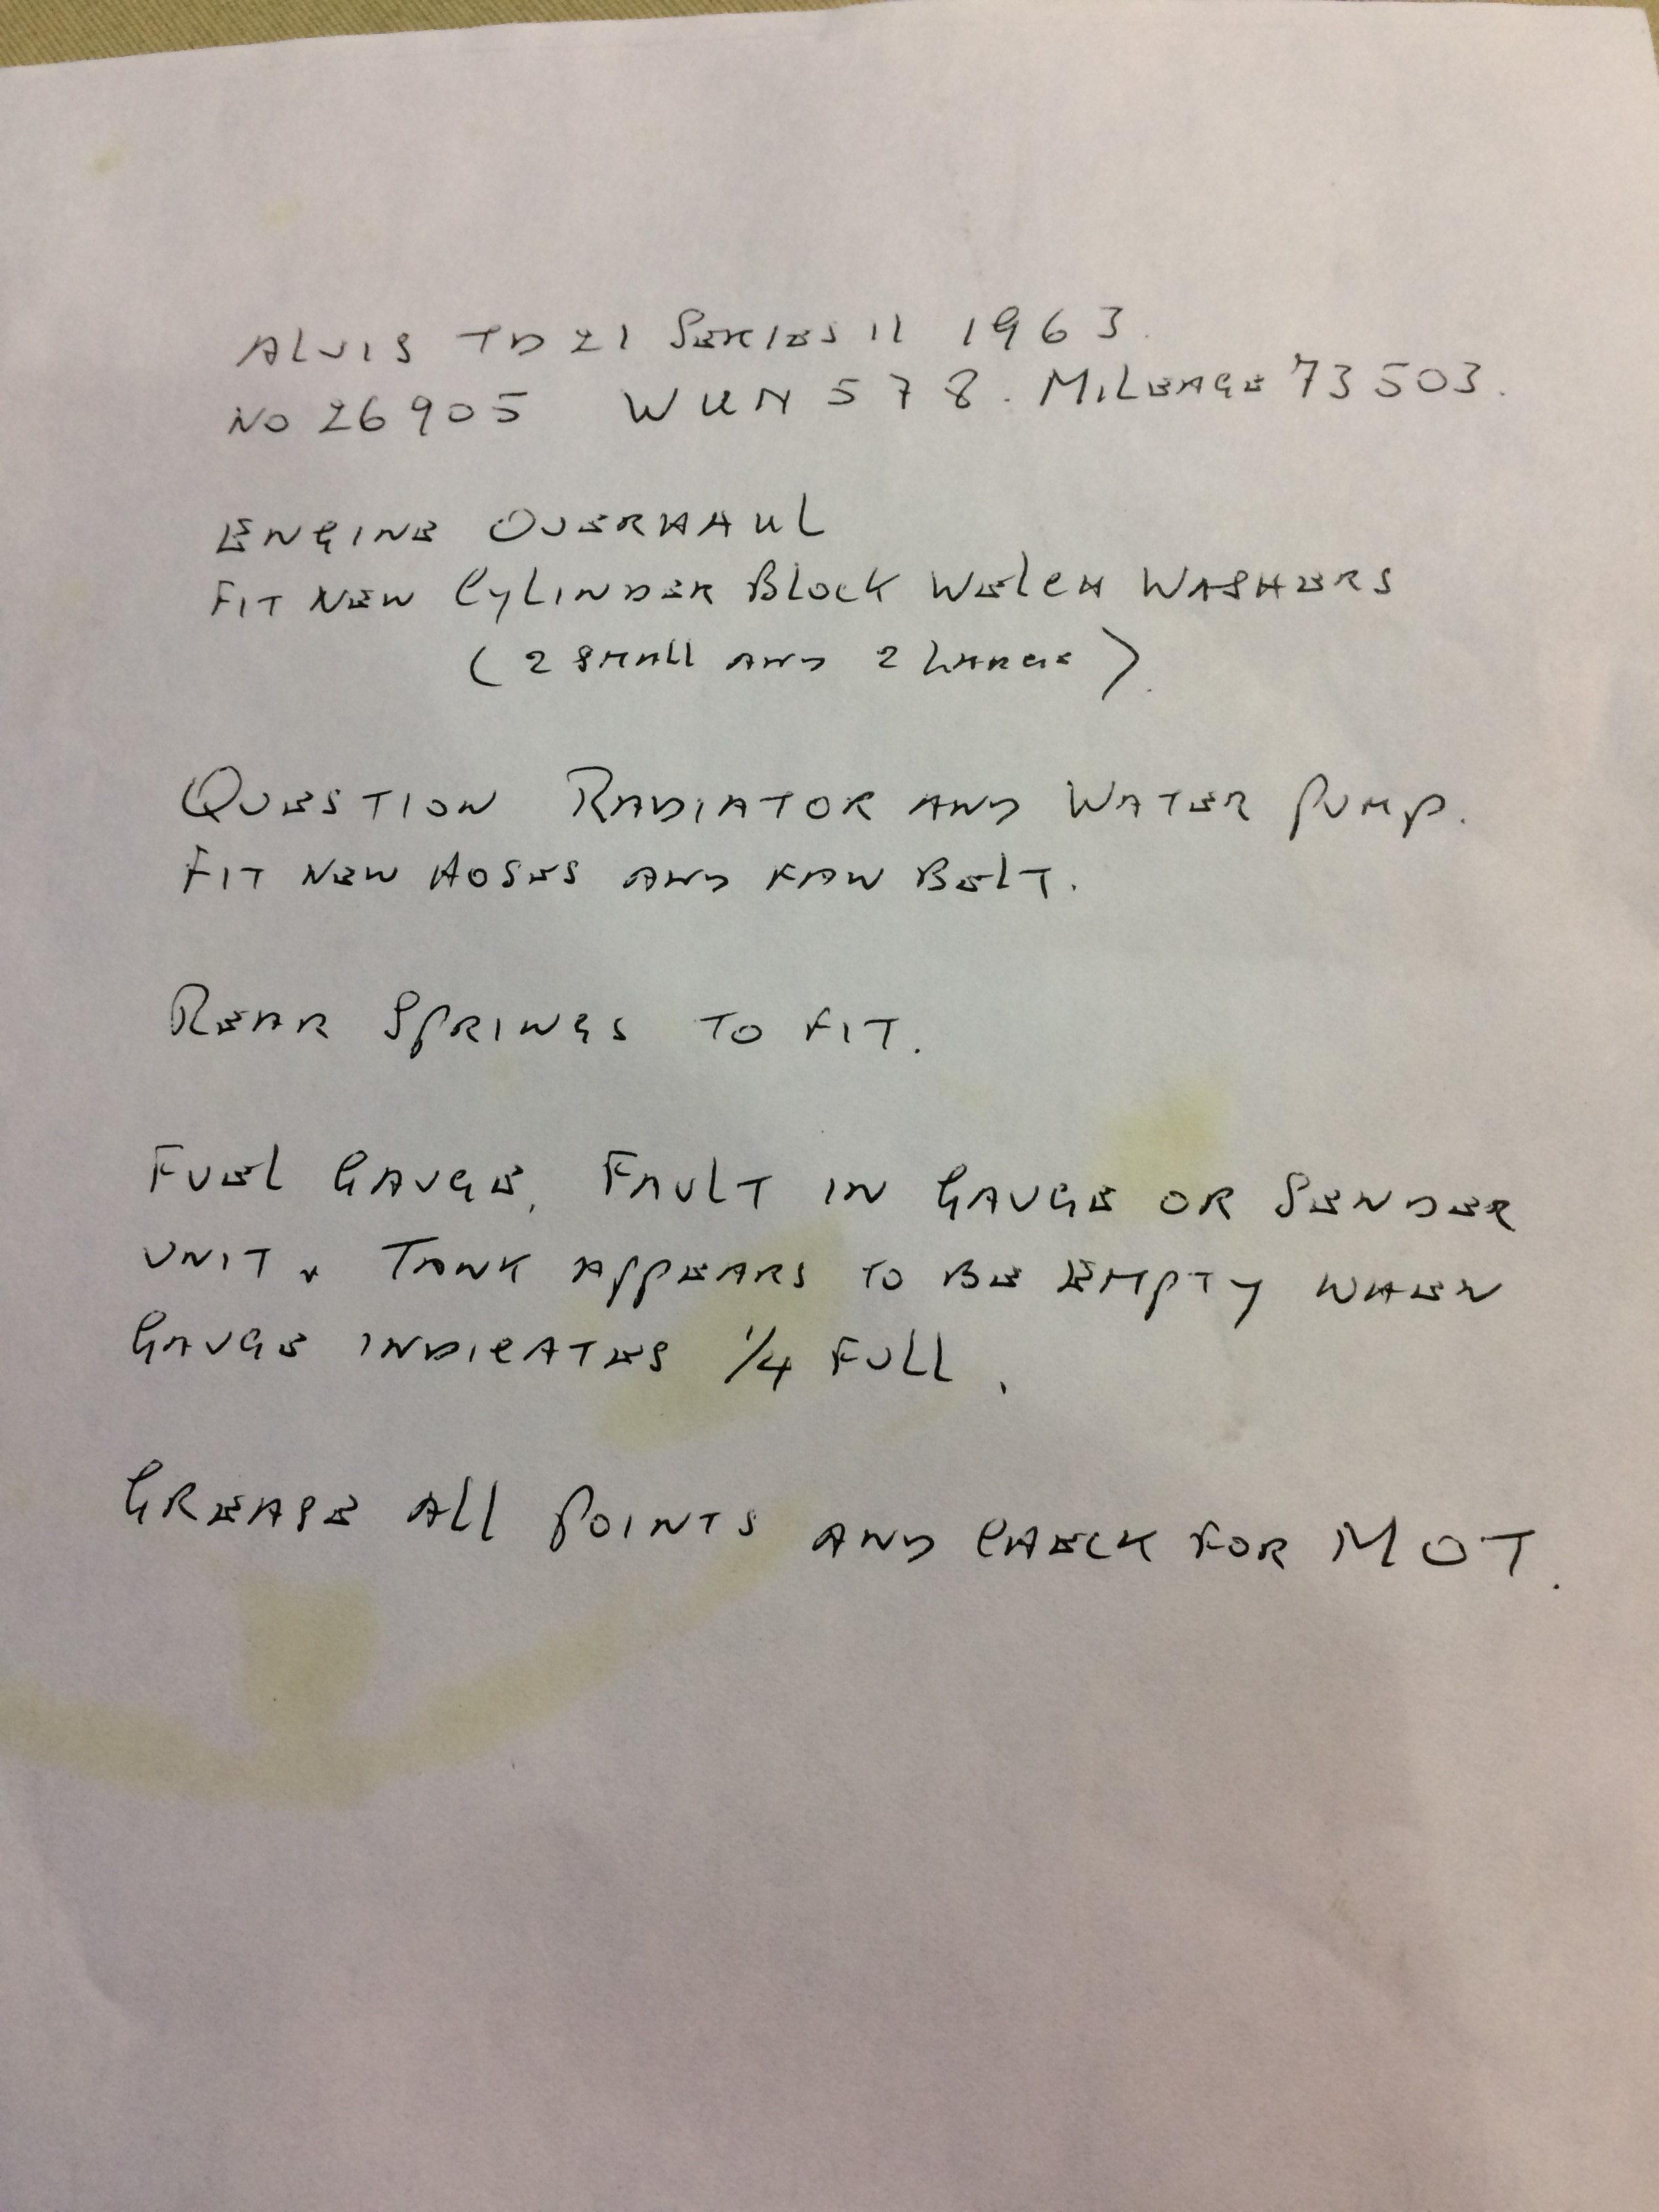 ALVIS TD 21 SERIES II 1963.
NO 26905 WUN 578. MILEAGE 73503.
ENGINE OVERHAUL
FIT NEW CYLINDER BLOCK WELCH WASHERS
(2 SMALL AND 2 LARGE).
QUESTION RADIATOR AND WATER PUMP.
FIT NEW HOSES AND FAN BELT.
REAR SPRINGS TO FIT.
FUEL GAUGE. FAULT IN GAUGE OR SENDER
UNIT. TANK APPEARS TO BE EMPTY WHEN
GAUGE INDICATES 1/4 FULL.
GREASE ALL POINTS AND CHECK FOR MOT.